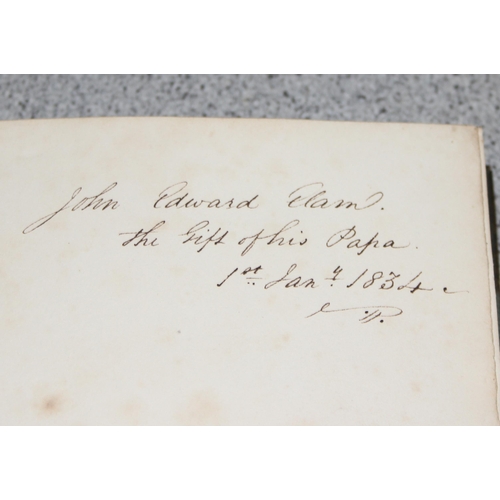 John Edward Elam.
the Gift of his Papa.
1st Jany 1834.